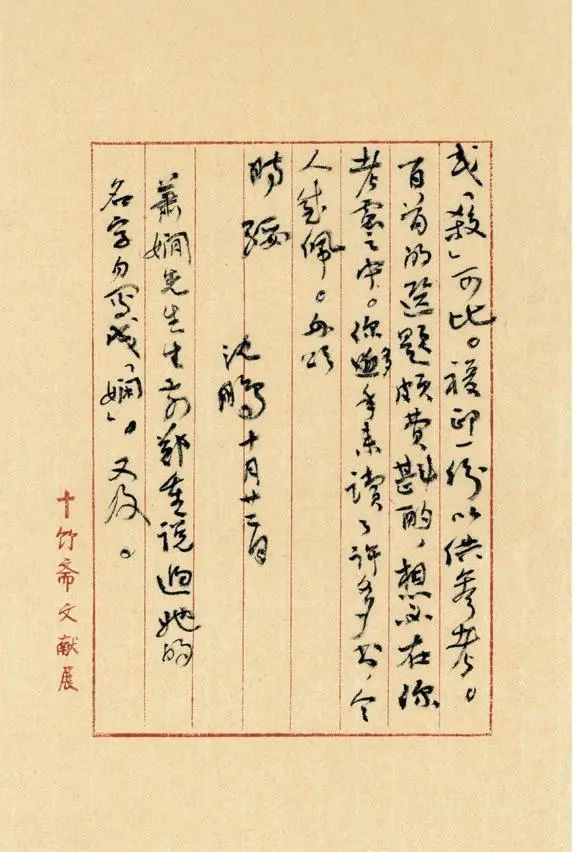 或「殺」可比。複印一份以供參考。
百首的選題頗費斟酌，想必在你
考慮之中。你多年來讀了許多書，令
人感佩。頌
時綏
沈鵬 十月廿二日
蕭嫺先生生前鄭重說過她的
名字勿寫成「嫻」。又及。
十竹斋文献展